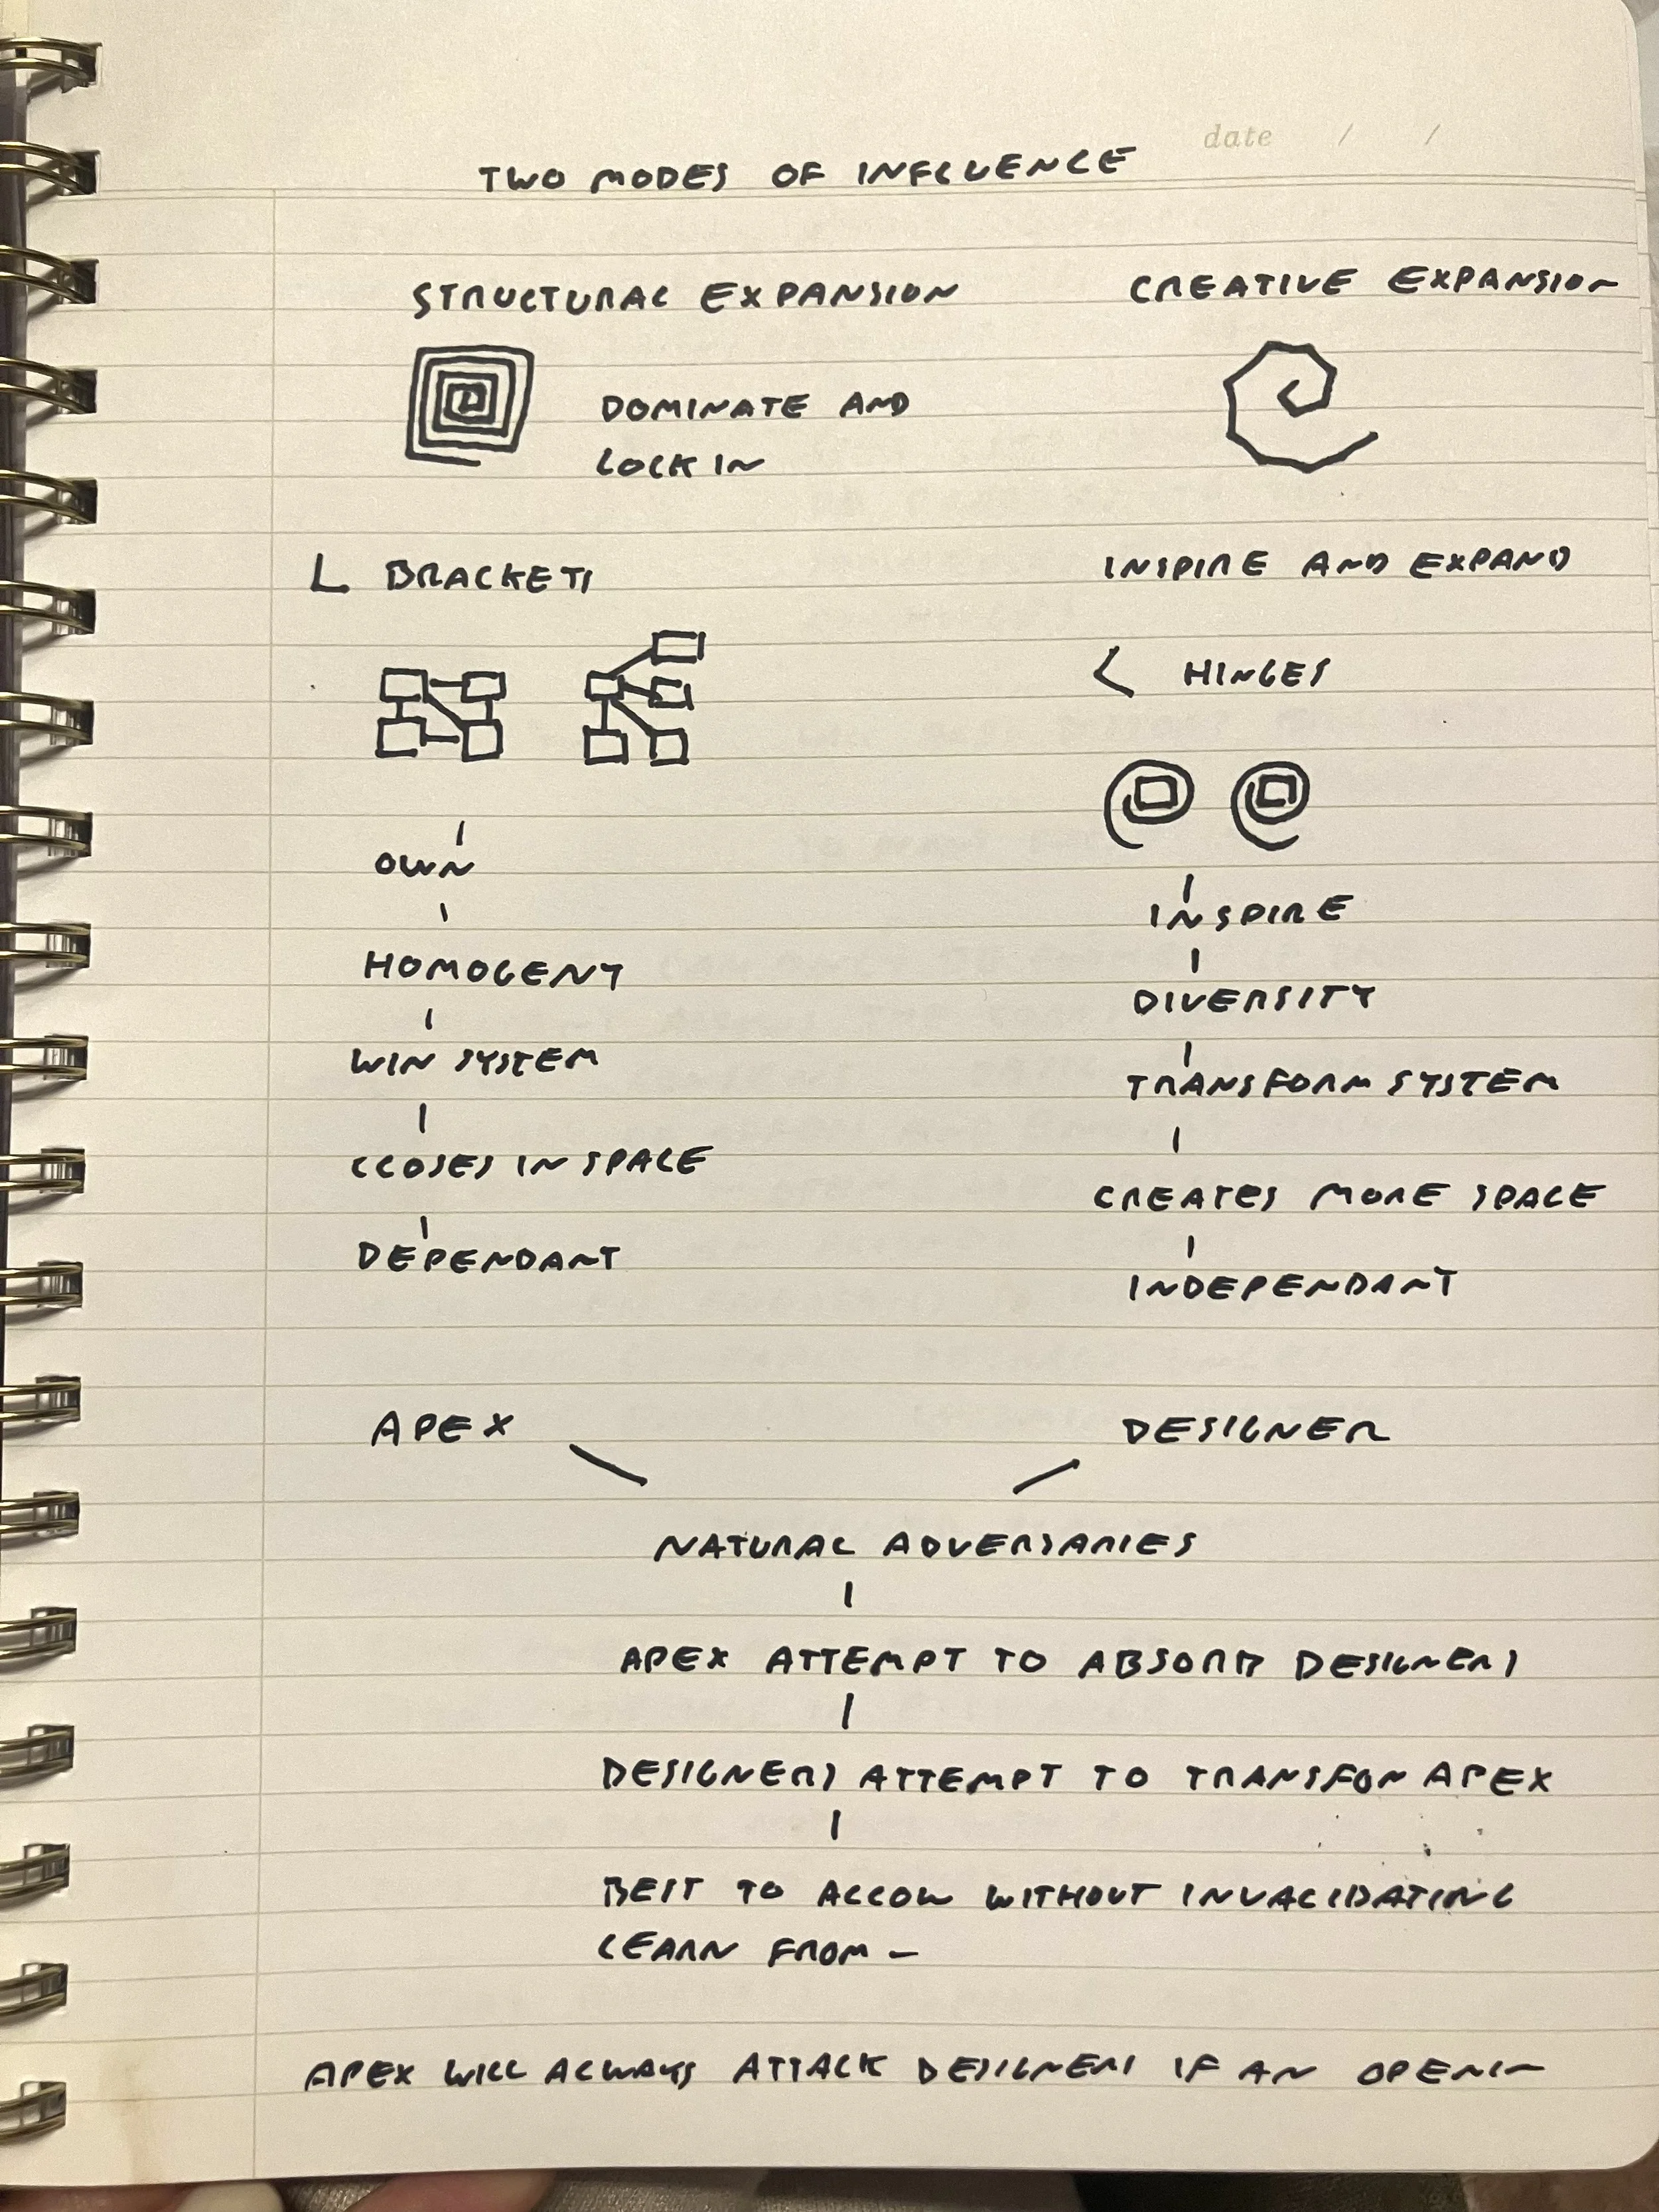 date / /
TWO MODES OF INFLUENCE
STRUCTURAL EXPANSION
DOMINATE AND
LOCK IN
L BRACKETS
OWN
HOMOGENY
WIN SYSTEM
CLOSES IN SPACE
DEPENDANT
APEX
CREATIVE EXPANSION
INSPIRE AND EXPAND
< HINGES
INSPIRE
DIVERSITY
TRANSFORM SYSTEM
CREATES MORE SPACE
INDEPENDANT
DESIGNER
NATURAL ADVERSARIES
APEX ATTEMPT TO ABSORB DESIGNERS
DESIGNERS ATTEMPT TO TRANSFOR APEX
BEST TO ALLOW WITHOUT INVALIDATING
LEARN FROM —
APEX WILL ALWAYS ATTACK DESIGNERS IF AN OPENIN